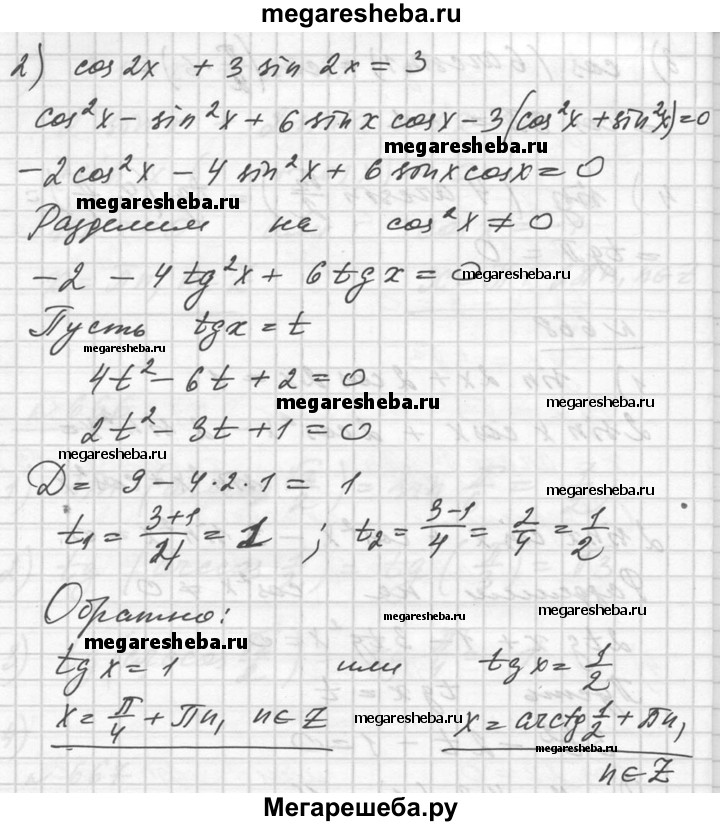 megaresheba.ru
2) cos 2x + 3 sin 2x = 3
cos²x - sin²x + 6 sin x cos x - 3(cos²x + sin²x) = 0
megaresheba.ru
-2 cos²x - 4 sin²x + 6 sin x cos x = 0
megaresheba.ru
Разделим на cos²x ≠ 0
-2 - 4 tg²x + 6 tg x = 0
megaresheba.ru
Пусть tg x = t
megaresheba.ru
4t² - 6t + 2 = 0
megaresheba.ru megaresheba.ru
2t² - 3t + 1 = 0
megaresheba.ru
D = 9 - 4·2·1 = 1
megaresheba.ru
t₁ = (3+1)/4 = 1 ; t₂ = (3-1)/4 = 2/4 = 1/2
Обратно:
megaresheba.ru megaresheba.ru
megaresheba.ru
tg x = 1 или tg x = 1/2
x = π/4 + πn, n ∈ Z x = arctg 1/2 + πn,
megaresheba.ru
megaresheba.ru
n ∈ Z
Мегарешеба.ру